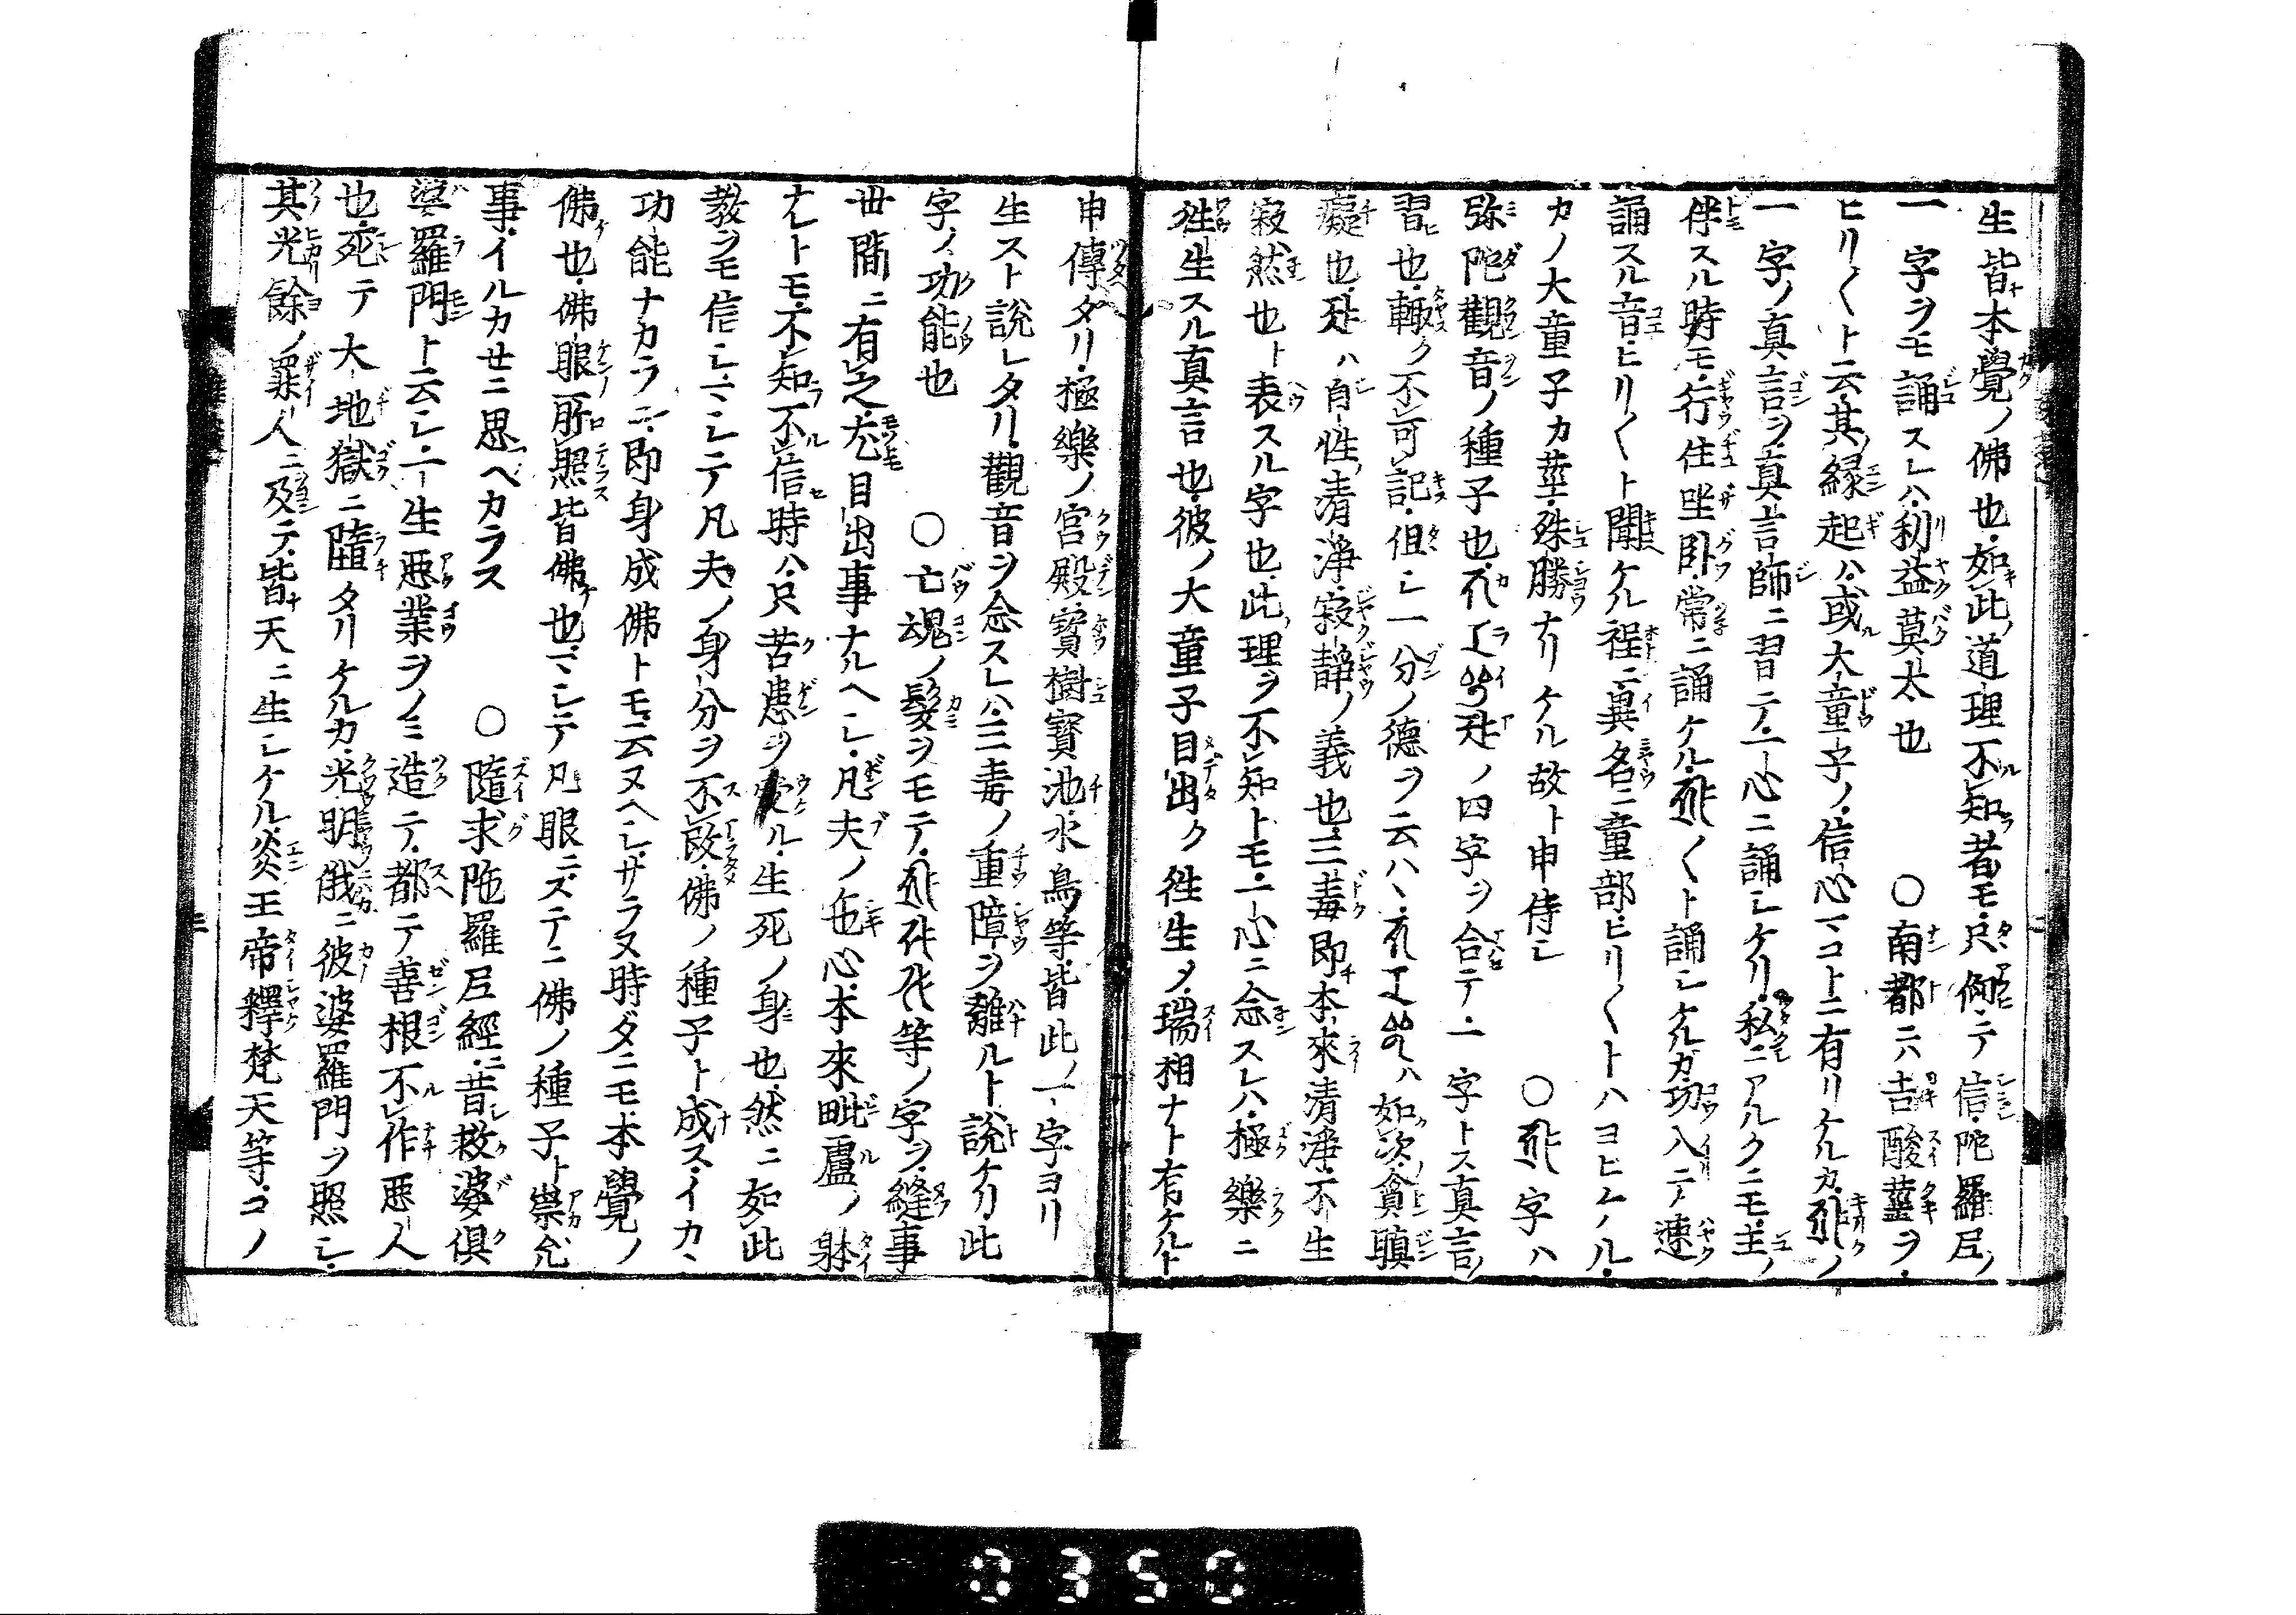 生皆本覺ノ佛也如此道理不知者モ只仰テ信陀羅尼ノ
一字ヲモ誦スレハ利益莫太也 ○南都ニハ吉酸莖ヲ
ヒリ〱ト云其縁起ハ或大童子ノ信心マコトニ有リケルカ𑖮𑖿𑖨𑖱𑖾ノ
一字ノ真言ヲ真言師ニ習テ一心ニ誦シケリ私ニアルクニモ主ノ
伴スル時モ行住坐卧常ニ誦ケル𑖮𑖿𑖨𑖱𑖾〱ト誦シケルガ功入テ速
誦スル音ヒリ〱ト聞ケル程ニ異名ニ童部ヒリ〱トハヨヒケル
カノ大童子カ莖殊勝ナリケル故ト申侍シ ○𑖮𑖿𑖨𑖱𑖾字ハ
弥陀觀音ノ種子也ノ四字ヲ合テ一字トス真言ノ
習也輙ク不可記但シ一分ノ德ヲ云ハヽハ如次貪瞋
癡也ハ自性清淨寂静ノ義也三毒即本來清淨不生
寂然也ト表スル字也此理ヲ不知トモ一心ニ念スレハ極樂ニ
徃生スル真言也彼ノ大童子目出ク徃生ノ瑞相ナト有ケルト
申傳タリ極樂ノ宮殿寳樹寳池水鳥等皆此ノ一字ヨリ
生スト説レタリ觀音ヲ念スレハ三毒ノ重障ヲ離ルト説ケリ此
字ノ功能也 ○亡魂ノ髮ヲモテ等ノ字ヲ縫事
世間ニ有之尤目出事ナルヘシ凡夫ノ色心本來毗盧ノ躰
ナレトモ不知不信時ハ只苦患ヲ受ル生死ノ身也然ニ如此
教ヲモ信シニシテ凡夫ノ身分ヲ不改佛ノ種子ト成スイカヽ
功能ナカラン即身成佛トモ云ヌヘシサラヌ時ダニモ本覺ノ
佛也佛眼所照皆佛也マシテ凡眼ニステニ佛ノ種子ト崇尤
事イルカセニ思ヘカラス ○隨求陁羅尼經ニ昔救婆俱
婆羅門ト云シ一生悪業ヲノミ造テ都テ善根不作悪人
也死テ大地獄ニ隨タリケルカ光明俄ニ彼婆羅門ヲ照シ
其光餘ノ罪人ニ及テ皆天ニ生シケル炎王帝釋梵天等コノ
三
0350